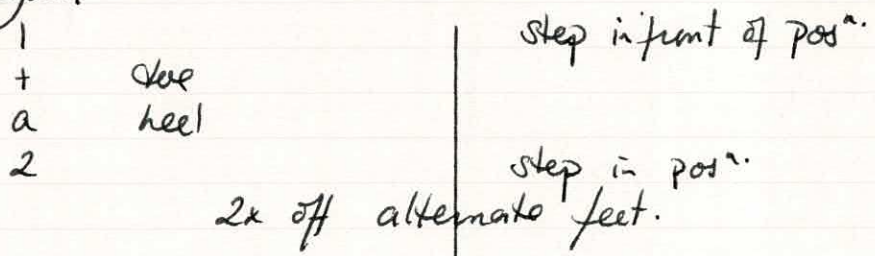 1 step in front of posⁿ.
+ toe
a heel
2 step in posⁿ.
2x off alternate feet.